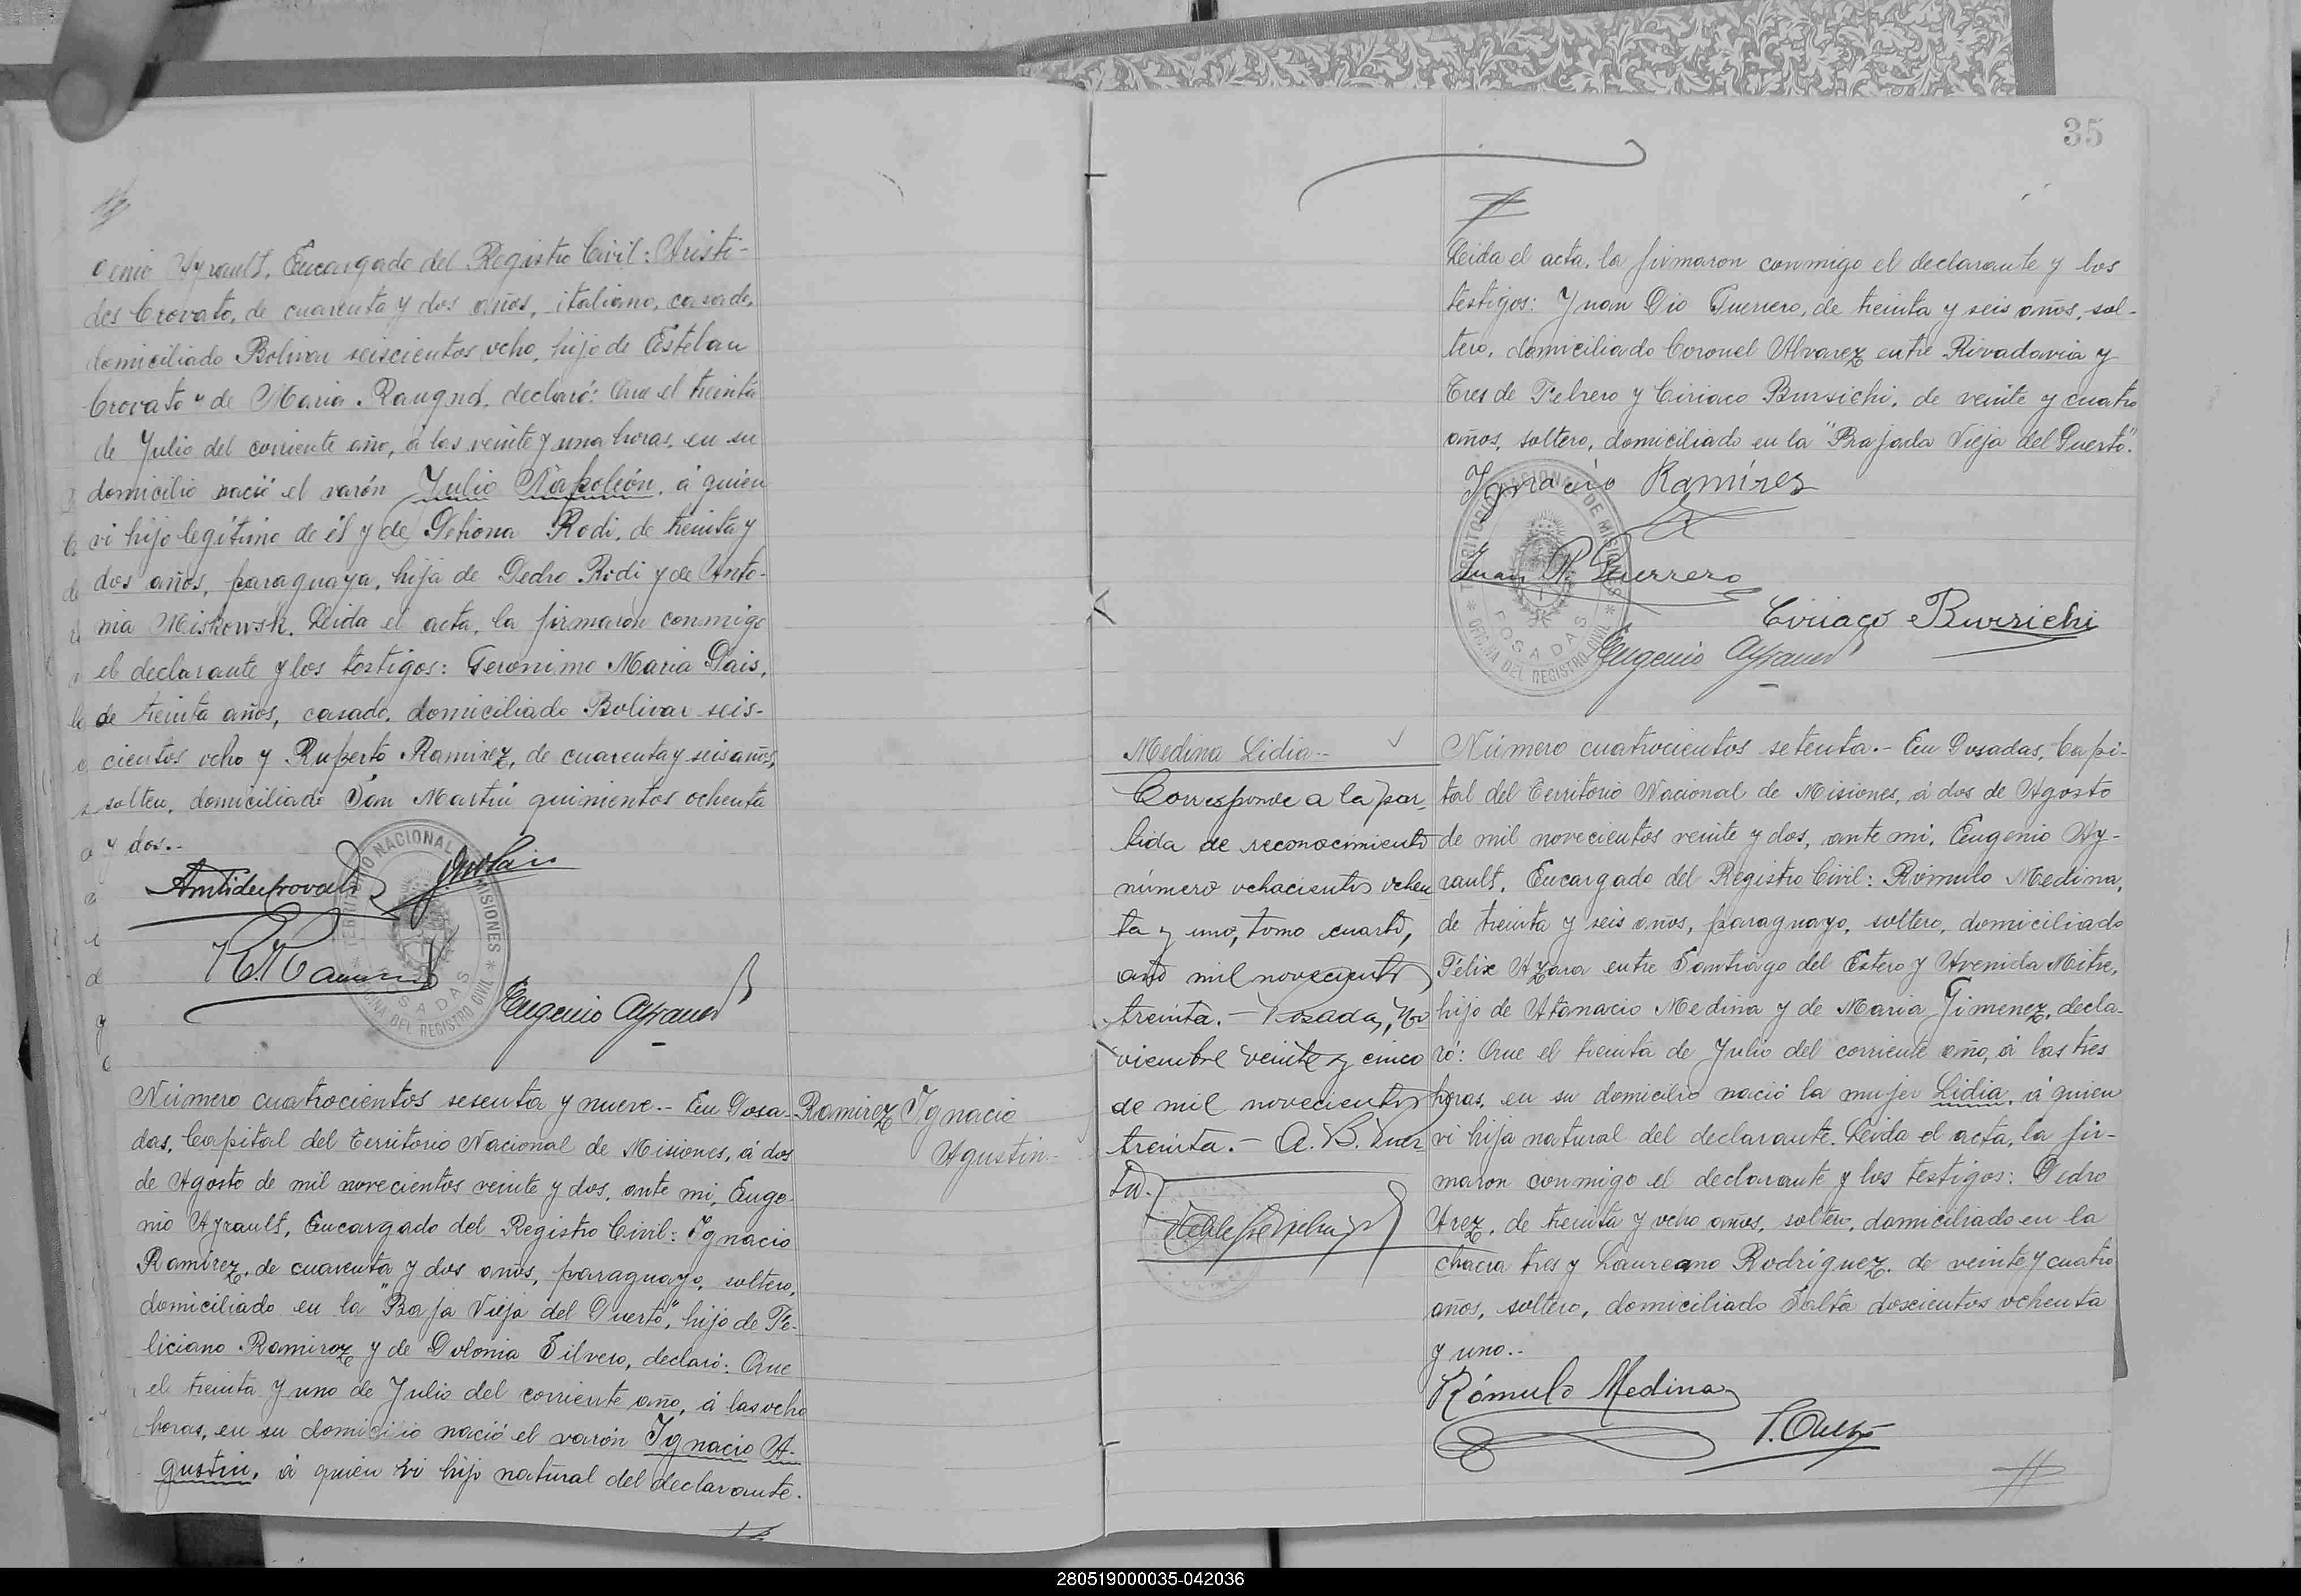 genio Ayrault, Encargado del Registro Civil: Aristi-
des Crovato, de cuarenta y dos años, italiano, casado,
domiciliado Bolivar seiscientos ocho, hijo de Esteban
Crovato y de Maria declaró: Que el treinta
de Julio del corriente año, á las veinte y una horas, en su
domicilio nació el varón Julio Napoleón, á quien
vi hijo legítimo de él y de Petrona Rodi, de treinta y
dos años, paraguaya, hija de Pedro Rodi y de Anto-
nia Miskowsk. Leida el acta, la firmaron conmigo
el declarante y los testigos: Geronimo Maria Pais,
de treinta años, casado, domiciliado Bolivar seis-
cientos ocho y Ruperto Ramirez, de cuarenta y seis años,
soltero, domiciliado San Martin quinientos ochenta
y dos.-
TERRITORIO NACIONAL DE MISIONES
POSADAS
OFICINA DEL REGISTRO CIVIL
Eugenio Ayrault
Número cuatrocientos sesenta y nueve.- En Posa-
das, Capital del Territorio Nacional de Misiones, á dos
de Agosto de mil novecientos veinte y dos, ante mi, Euge-
nio Ayrault, Encargado del Registro Civil: Ignacio
Ramirez, de cuarenta y dos años, paraguayo, soltero,
domiciliado en la "Baja Vieja del Puerto", hijo de Fe-
liciano Ramirez y de Polonia Silvero, declaró: Que
el treinta y uno de Julio del corriente año, á las ocho
horas, en su domicilio nació el varón Ignacio A-
gustin, á quien vi hijo natural del declarante.
Ramirez Ignacio
Agustin.-
35
Leida el acta, la firmaron conmigo el declarante y los
testigos: Juan Pio Guerrero, de treinta y seis años, sol-
tero, domiciliado Coronel Alvarez entre Rivadavia y
Tres de Febrero y Ciriaco Bursichi, de veinte y cuatro
años, soltero, domiciliado en la "Bajada Vieja del Puerto".
Ignacio Ramírez
Juan P. Guerrero
Ciriaco Burrichi
Eugenio Ayrault
TERRITORIO NACIONAL DE MISIONES
POSADAS
OFICINA DEL REGISTRO CIVIL
Medina Lidia.-
Corresponde a la par-
tida de reconocimiento
número ochocientos ochen
ta y uno, tomo cuarto,
año mil novecientos
treinta.- Posadas, No
viembre veinte y cinco
de mil novecientos
treinta.- A. B.
Número cuatrocientos setenta.- En Posadas, Capi-
tal del Territorio Nacional de Misiones, á dos de Agosto
de mil novecientos veinte y dos, ante mi, Eugenio Ay-
rault, Encargado del Registro Civil: Rómulo Medina,
de treinta y seis años, paraguayo, soltero, domiciliado
Félix Azara entre Santiago del Estero y Avenida Mitre,
hijo de Atanacio Medina y de Maria Gimenez, decla-
ró: Que el treinta de Julio del corriente año, á las tres
horas, en su domicilio nació la mujer Lidia, á quien
vi hija natural del declarante. Leida el acta, la fir-
maron conmigo el declarante y los testigos: Pedro
Arez, de treinta y ocho años, soltero, domiciliado en la
chacra tres y Laureano Rodríguez, de veinte y cuatro
años, soltero, domiciliado Salta doscientos ochenta
y uno.-
Rómulo Medina
280519000035-042036